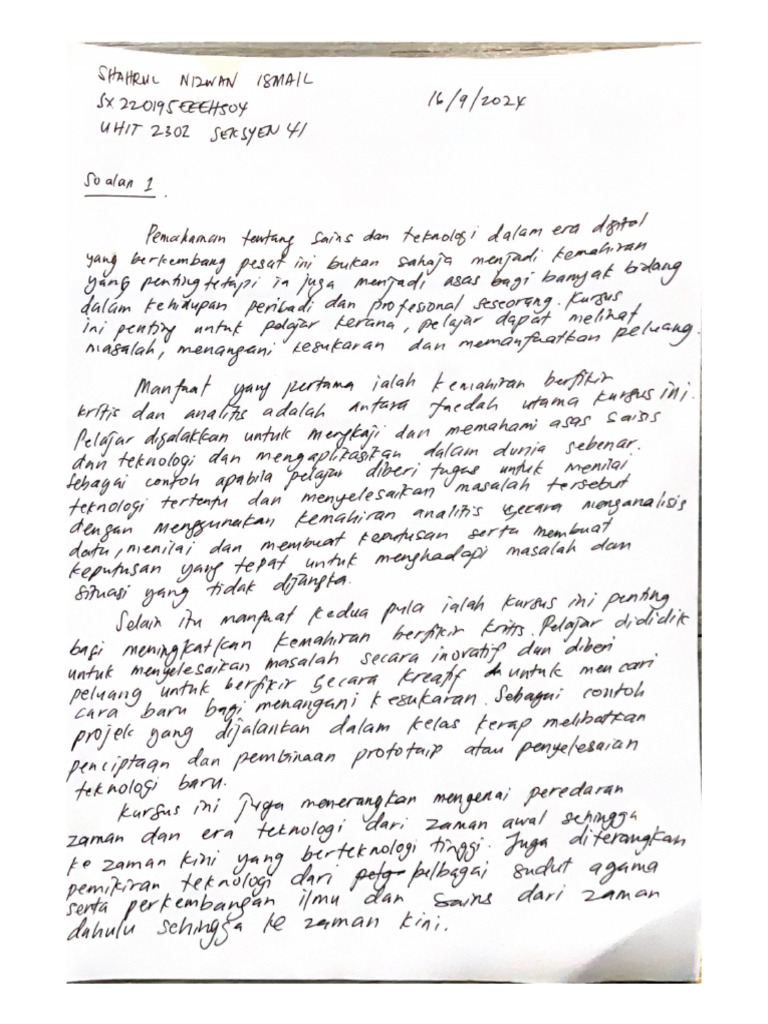 SHAHRUL NIZWAN ISMAIL
SX220195EEEHS04
16/9/2024
UHIT 2302 SEKSYEN 41
Soalan 1.
Pemahaman tentang sains dan teknologi dalam era digital
yang berkembang pesat ini bukan sahaja menjadi kemahiran
yang penting tetapi ia juga menjadi asas bagi banyak bidang
dalam kehidupan peribadi dan profesional seseorang. Kursus
ini penting untuk pelajar kerana, pelajar dapat melihat
masalah, menangani kesukaran dan memanfaatkan peluang.
Manfaat yang pertama ialah kemahiran berfikir
kritis dan analitis adalah antara faedah utama kursus ini.
Pelajar digalakkan untuk mengkaji dan memahami asas sains
dan teknologi dan mengaplikasikan dalam dunia sebenar.
Sebagai contoh apabila pelajar diberi tugas untuk menilai
teknologi tertentu dan menyelesaikan masalah tersebut
dengan menggunakan kemahiran analitis secara menganalisis
data, menilai dan membuat keputusan serta membuat
keputusan yang tepat untuk menghadapi masalah dan
situasi yang tidak dijangka.
Selain itu manfaat kedua pula ialah kursus ini penting
bagi meningkatkan kemahiran berfikir kritis. Pelajar dididik
untuk menyelesaikan masalah secara inovatif dan diberi
peluang untuk berfikir secara kreatif untuk mencari
cara baru bagi menangani kesukaran. Sebagai contoh
projek yang dijalankan dalam kelas kerap melibatkan
penciptaan dan pembinaan prototaip atau penyelesaian
teknologi baru.
Kursus ini juga menerangkan mengenai peredaran
zaman dan era teknologi dari zaman awal sehingga
ke zaman kini yang berteknologi tinggi. Juga diterangkan
pemikiran teknologi dari pelbagai sudut agama
serta perkembangan ilmu dan sains dari zaman
dahulu sehingga ke zaman kini.